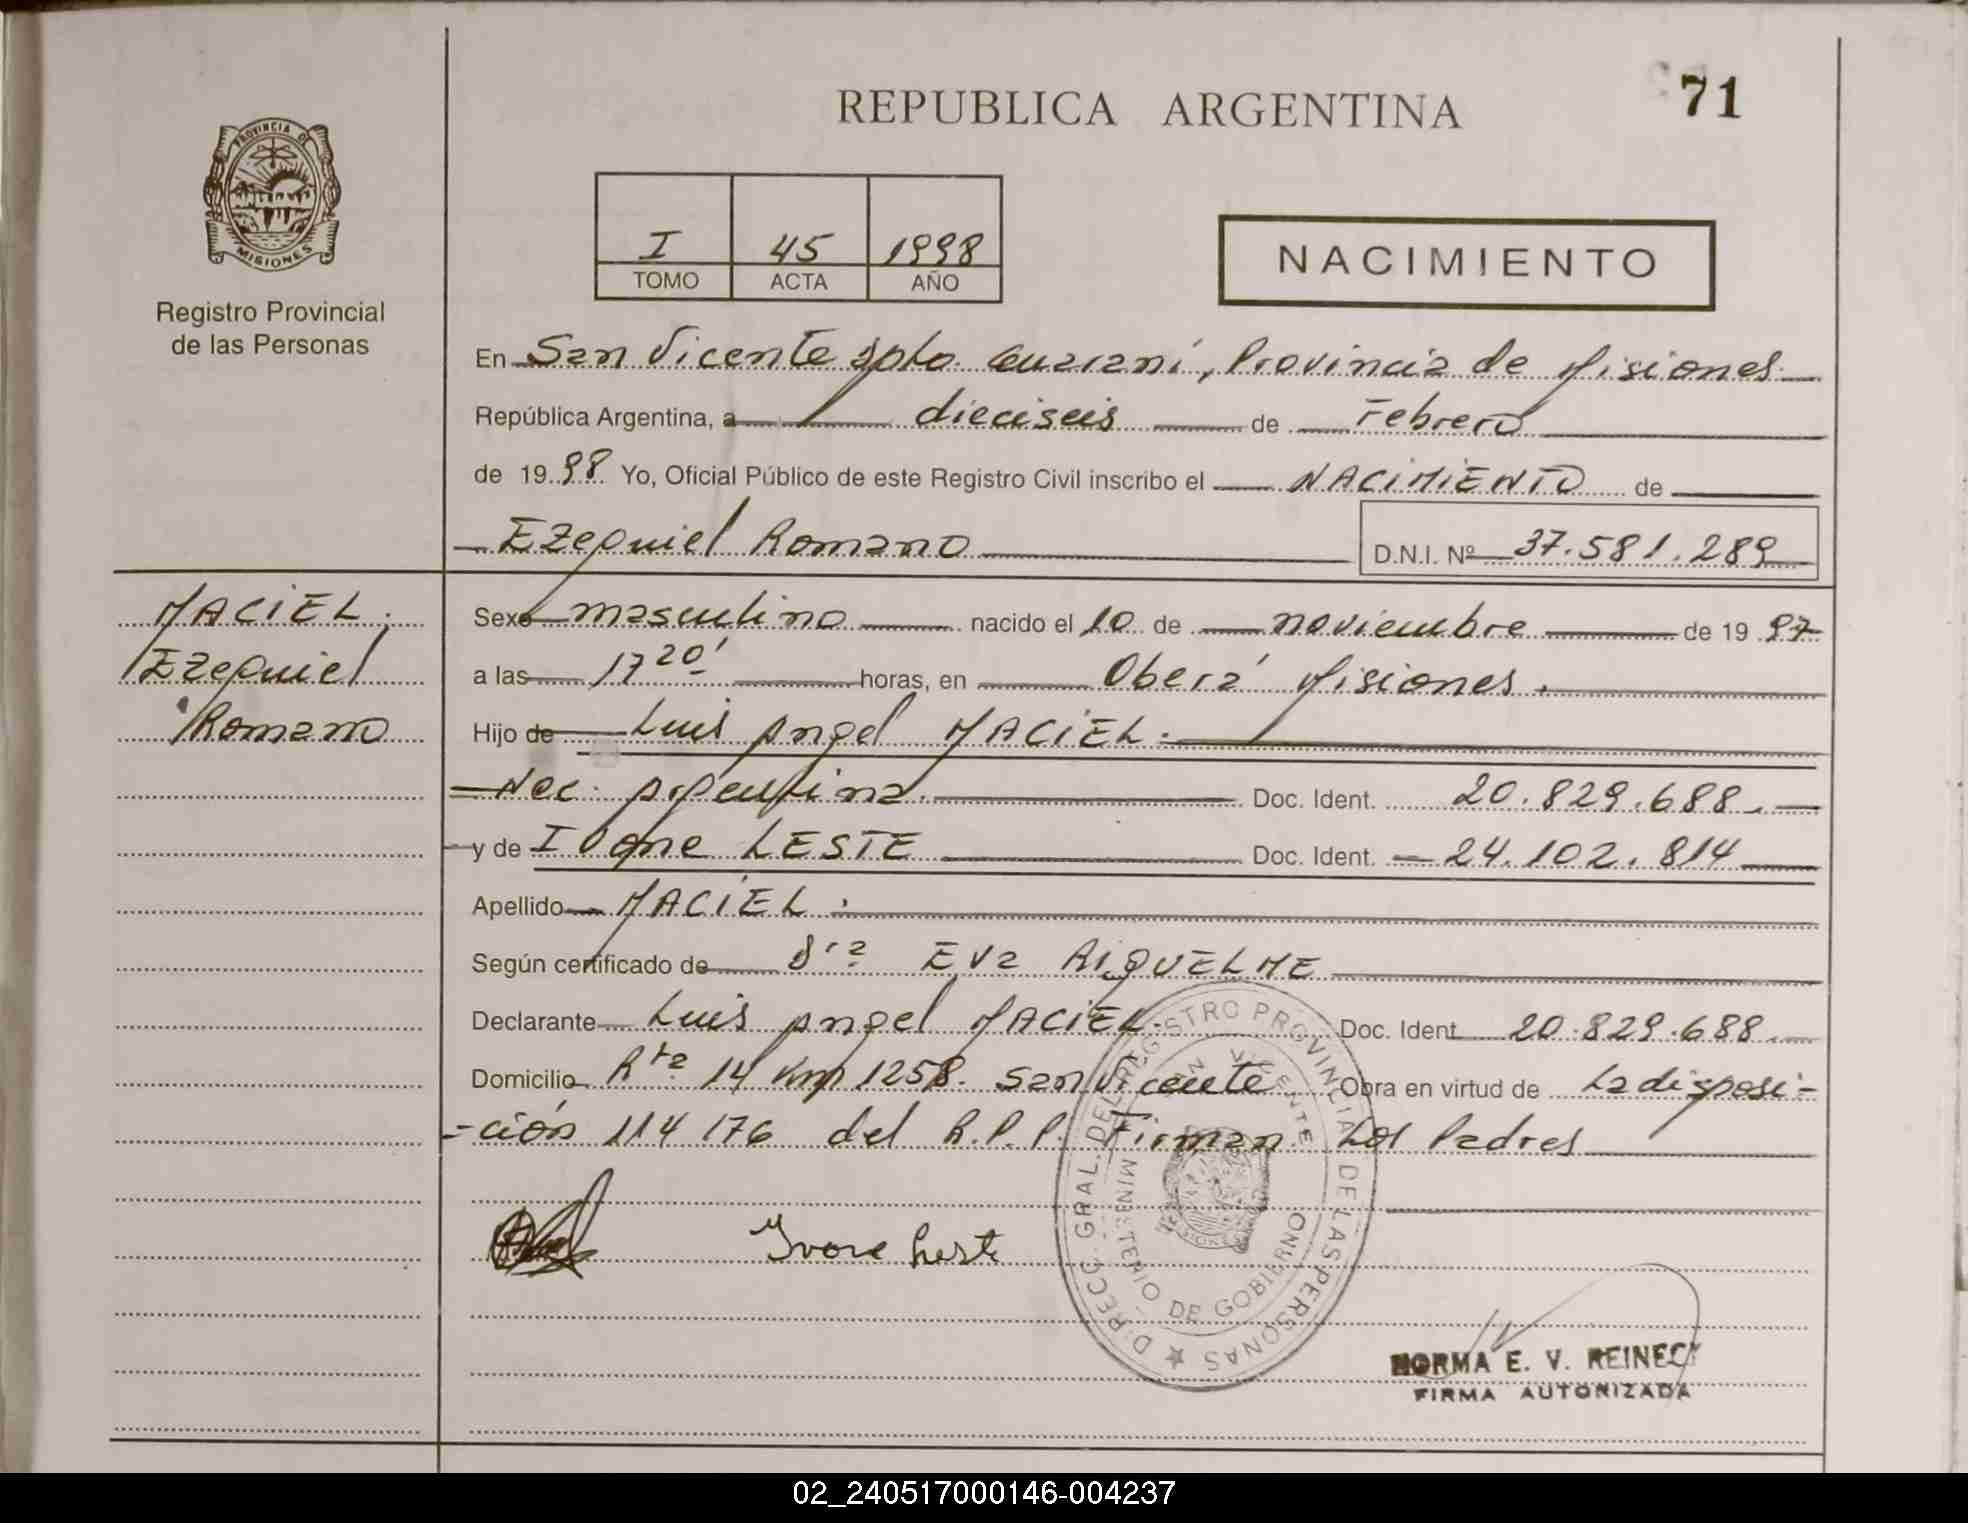 71
REPUBLICA ARGENTINA
PROVINCIA DE
MISIONES
Registro Provincial
de las Personas
I 45 1998
TOMO ACTA AÑO
NACIMIENTO
En San Vicente Dpto. Guaraní, Provincia de Misiones
República Argentina, a dieciseis de Febrero
de 1998 Yo, Oficial Público de este Registro Civil inscribo el NACIMIENTO de
Ezequiel Romano D.N.I. Nº 37.581.289
MACIEL.
Ezequiel
Romano
Sexo masculino nacido el 10 de noviembre de 1997
a las 17 20' horas, en Oberá Misiones.
Hijo de Luis Angel MACIEL.
Nac. Argentina. Doc. Ident. 20.829.688.
y de Ivone LESTE Doc. Ident. 24.102.814
Apellido MACIEL.
Según certificado de Sra Eva RIQUELME
Declarante Luis Angel MACIEL. Doc. Ident. 20.829.688.
Domicilio Rta 14 Km 1258. San Vicente Obra en virtud de La disposi-
-ción 114176 del R.P.P. Firman Los Padres
Ivone Leste
DIRECC. GRAL. DEL REGISTRO PROVINCIAL DE LAS PERSONAS
SAN VICENTE
MINISTERIO DE GOBIERNO
NORMA E. V. REINECK
FIRMA AUTORIZADA
02_240517000146-004237